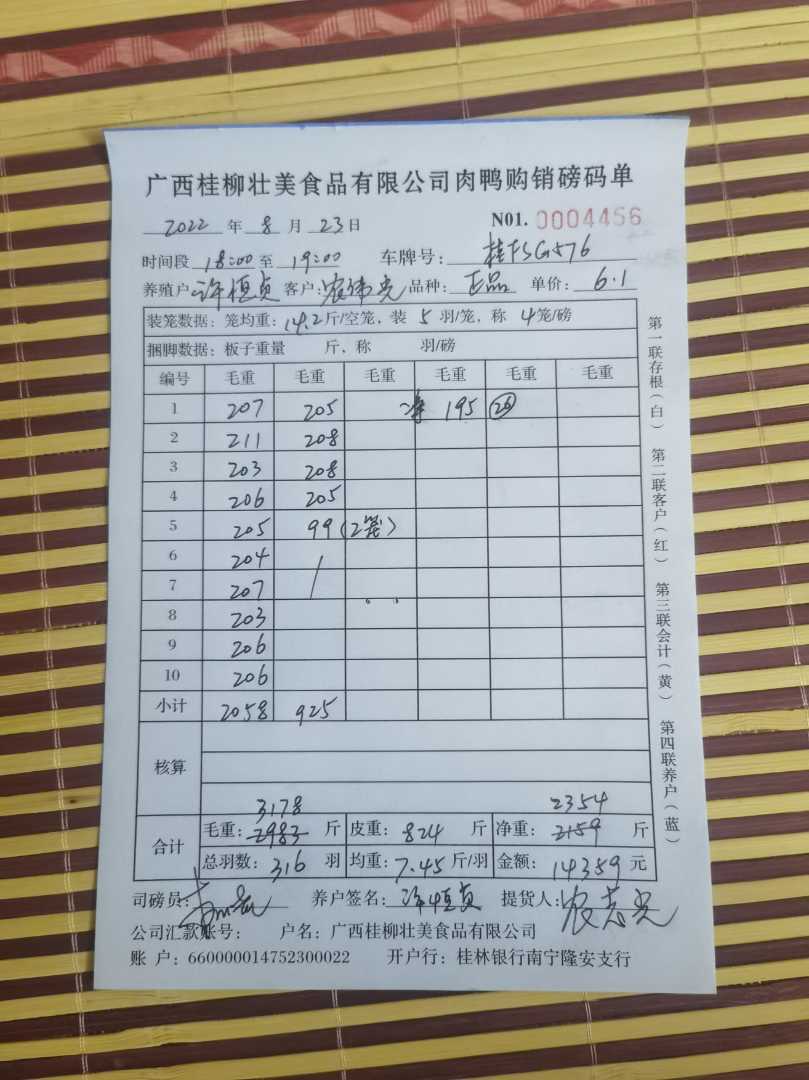 广西桂柳壮美食品有限公司肉鸭购销磅码单
2022 年 8 月 23 日 N01. 0004456
时间段 18:00 至 19:00 车牌号: 桂FSG576
养殖户: 许恒贞 客户: 品种: 正品 单价: 6.1
装笼数据: 笼均重: 14.2 斤/空笼, 装 5 羽/笼, 称 4 笼/磅
捆脚数据: 板子重量 斤, 称 羽/磅
编号 毛重 毛重 毛重 毛重 毛重 毛重
1 207 205 净 195
2 211 208
3 203 208
4 206 205
5 205 99 (2笼)
6 204
7 207
8 203
9 206
10 206
小计 2058 925
核算
3178 2354
合计 毛重: 2983 斤 皮重: 824 斤 净重: 2159 斤
总羽数: 316 羽 均重: 7.45 斤/羽 金额: 14359 元
司磅员: 养户签名: 许恒贞 提货人:
公司汇款账号: 户名: 广西桂柳壮美食品有限公司
账 户: 660000014752300022 开户行: 桂林银行南宁隆安支行
第一联存根(白) 第二联客户(红) 第三联会计(黄) 第四联养户(蓝)